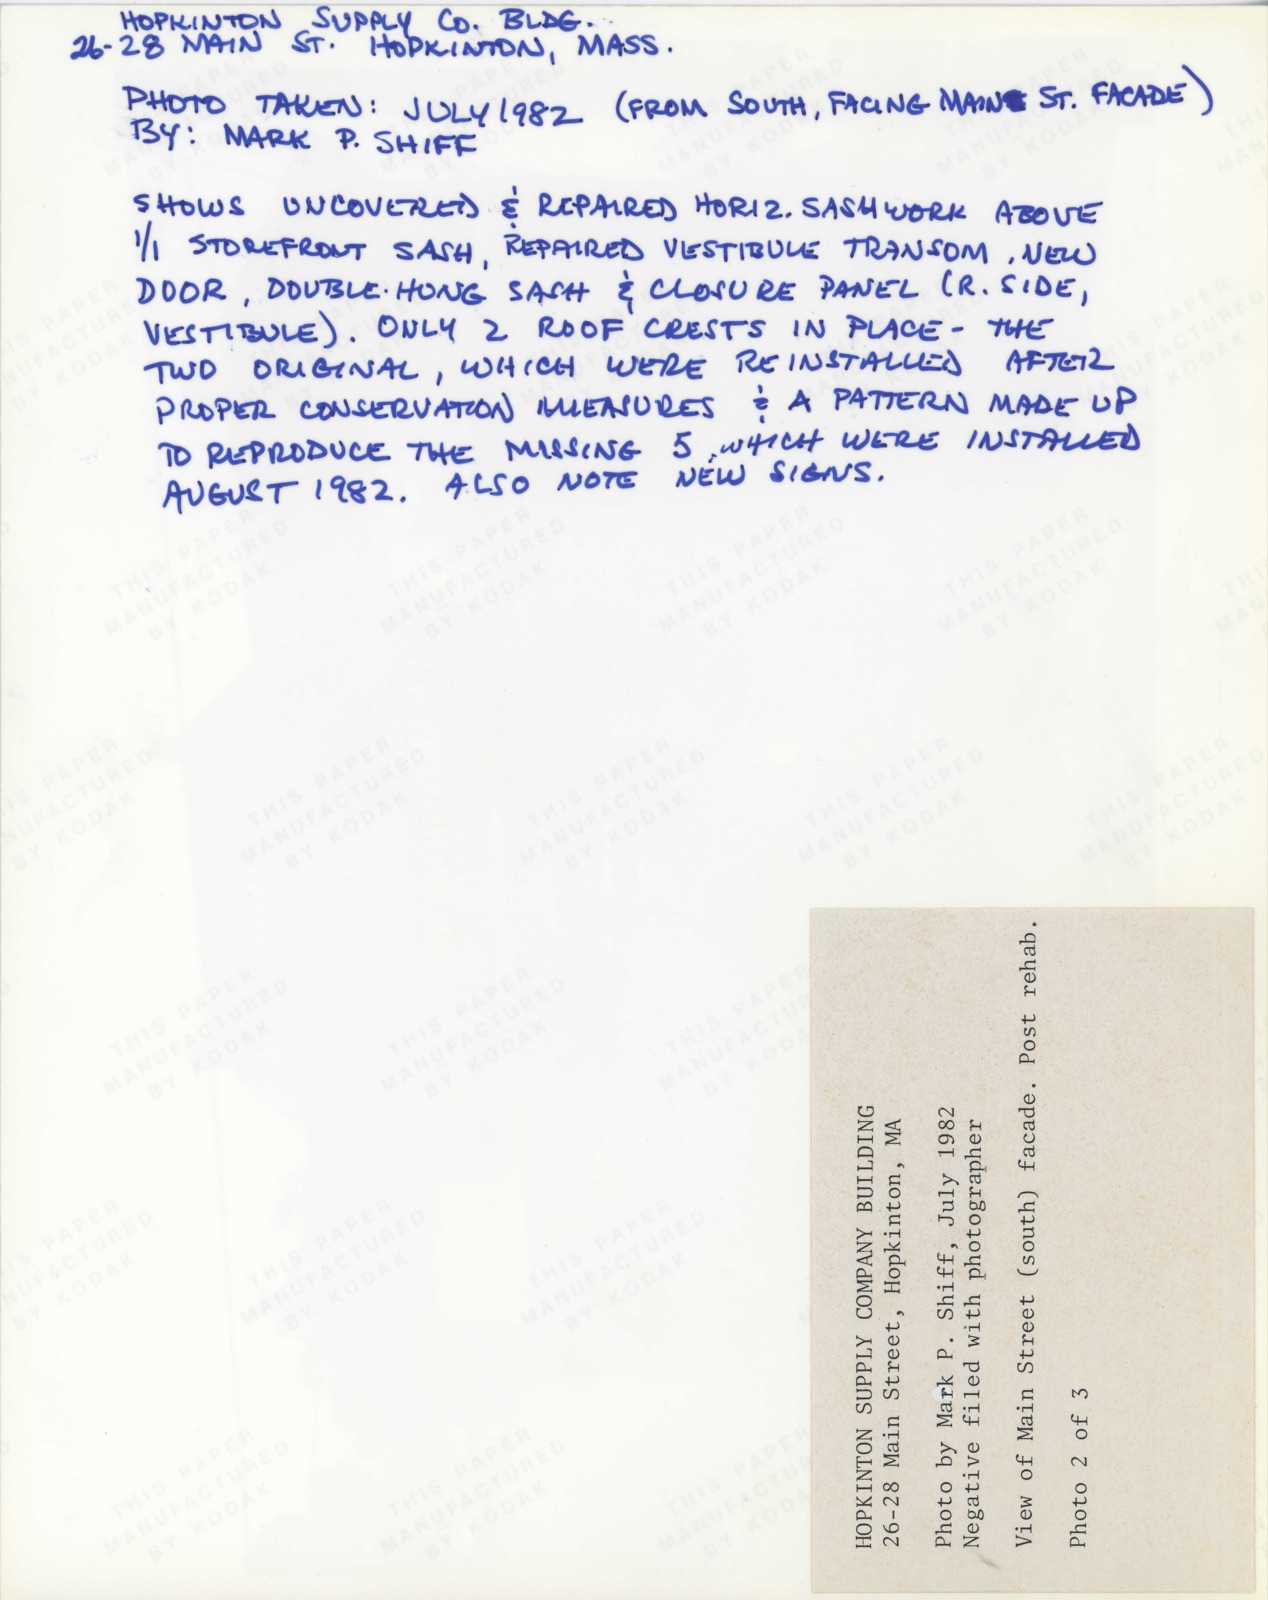 HOPKINTON SUPPLY CO. BLDG.
26-28 MAIN ST. HOPKINTON, MASS.
PHOTO TAKEN: JULY 1982 (FROM SOUTH, FACING MAIN ST. FACADE)
BY: MARK P. SHIFF
SHOWS UNCOVERED & REPAIRED HORIZ. SASHWORK ABOVE
1/1 STOREFRONT SASH, REPAIRED VESTIBULE TRANSOM, NEW
DOOR, DOUBLE-HUNG SASH & CLOSURE PANEL (R. SIDE,
VESTIBULE). ONLY 2 ROOF CRESTS IN PLACE - THE
TWO ORIGINAL, WHICH WERE REINSTALLED AFTER
PROPER CONSERVATION MEASURES & A PATTERN MADE UP
TO REPRODUCE THE MISSING 5, WHICH WERE INSTALLED
AUGUST 1982. ALSO NOTE NEW SIGNS.
HOPKINTON SUPPLY COMPANY BUILDING
26-28 Main Street, Hopkinton, MA
Photo by Mark P. Shiff, July 1982
Negative filed with photographer
View of Main Street (south) facade. Post rehab.
Photo 2 of 3
THIS PAPER
MANUFACTURED
BY KODAK